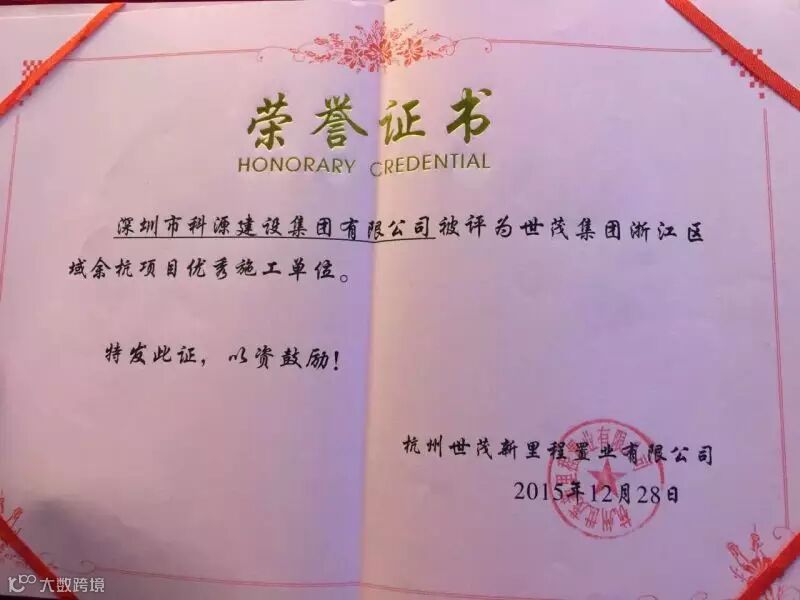 荣誉证书
HONORARY CREDENTIAL
深圳市科源建设集团有限公司被评为世茂集团浙江区
域余杭项目优秀施工单位。
特发此证，以资鼓励！
杭州世茂新里程置业有限公司
2015年12月28日
大数跨境